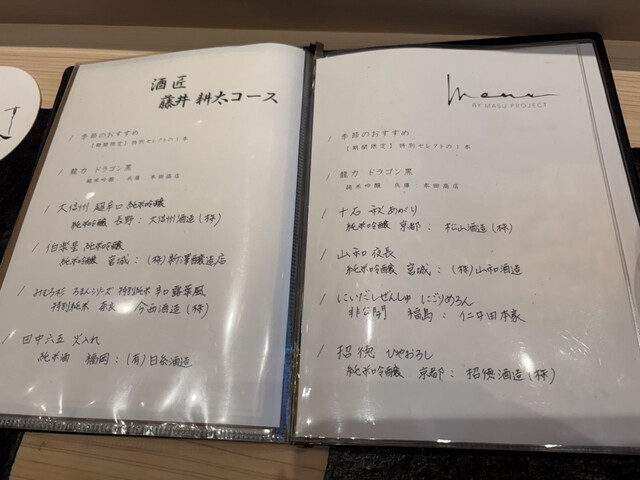 酒匠
藤井 耕太コース
/ 季節のおすすめ
【期間限定】特別セレクトの1本
/ 龍力 ドラゴン黒
純米吟醸 兵庫：本田商店
/ 大信州 超辛口 純米吟醸
純米吟醸 長野：大信州酒造(株)
/ 伯楽星 純米吟醸
純米吟醸 宮城：(株)新澤醸造店
/ みむろ杉 ろまんシリーズ 特別純米 辛口 露葉風
特別純米 奈良：今西酒造(株)
/ 田中六五 火入れ
純米酒 福岡：(有)白糸酒造
Menu
BY MASU PROJECT
/ 季節のおすすめ
【期間限定】特別セレクトの1本
/ 龍力 ドラゴン黒
純米吟醸 兵庫：本田商店
/ 十石 秋あがり
純米吟醸 京都：松山酒造(株)
/ 山和 夜長
純米吟醸 宮城：(株)山和酒造
/ にいだしぜんしゅ にごりめろん
非公開 福島：仁井田本家
/ 招德 ひやおろし
純米吟醸 京都：招德酒造(株)